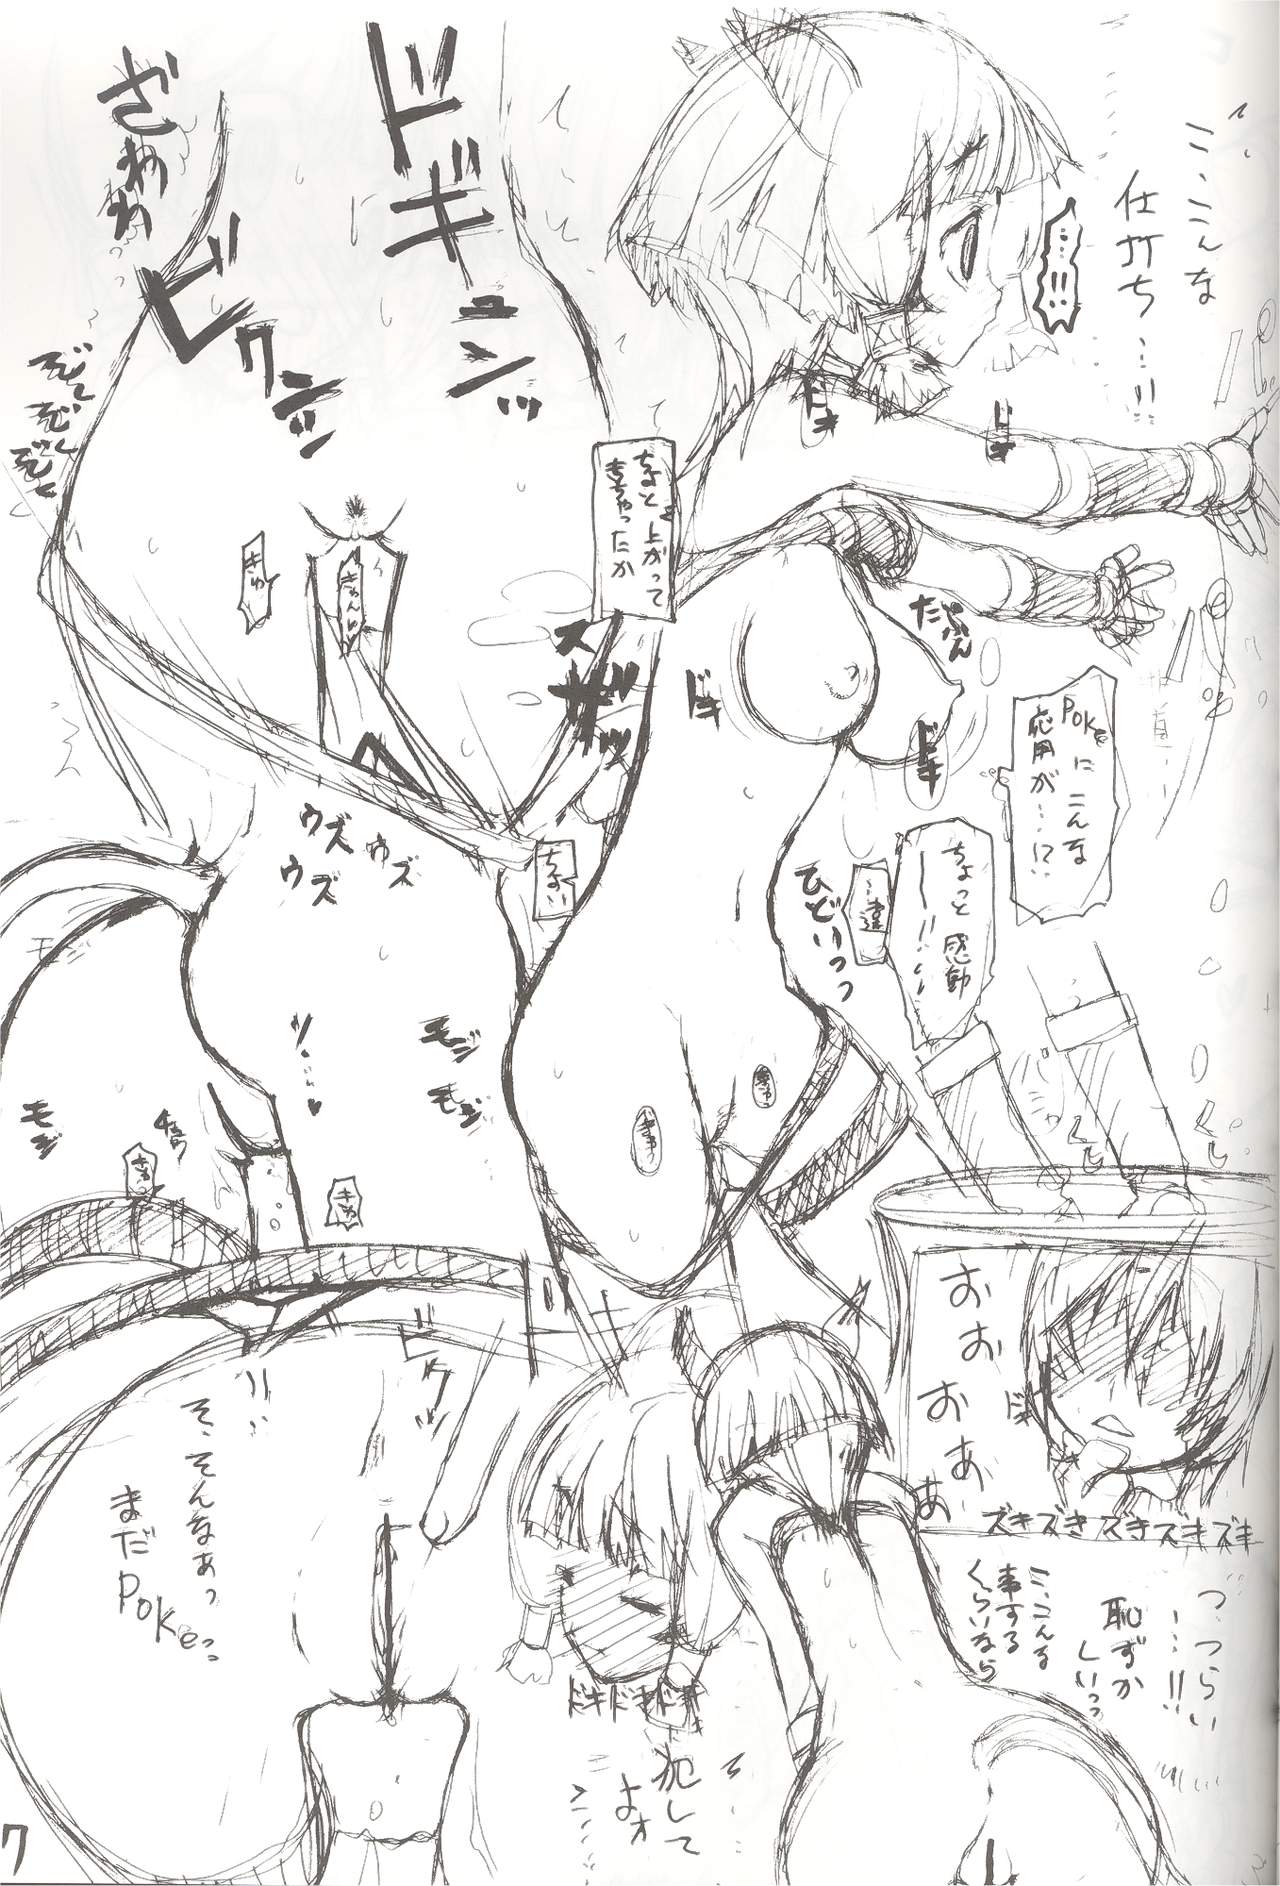 こ、こんな
仕打ち…!!
…!!
ドキ
ドキ
ドキュンッ
ビクンッ
ざわわ
ぞくぞくぞく
ちょっと上がって
きちゃったか
きゅ
きゅん
ズ
ザッ
たぷん
ドキ
ドキ
Pokeに
こんな
応用が…!?
ちょっと感動
ー!!
違
ひどいっっ
ちょい
ウズウズ
ウズウズ
モジモジ
モジ
きゅ
きゅ
おおおぁぁ
ドキ
ズキズキズキズキズキ
つ、つらい
…!!
恥ずか
しいっっ
こ、こんな
事する
くらいなら
ビクッ
そ、そんなぁっ
まだPokeっ
ドキドキドキ
犯して
よォ
7